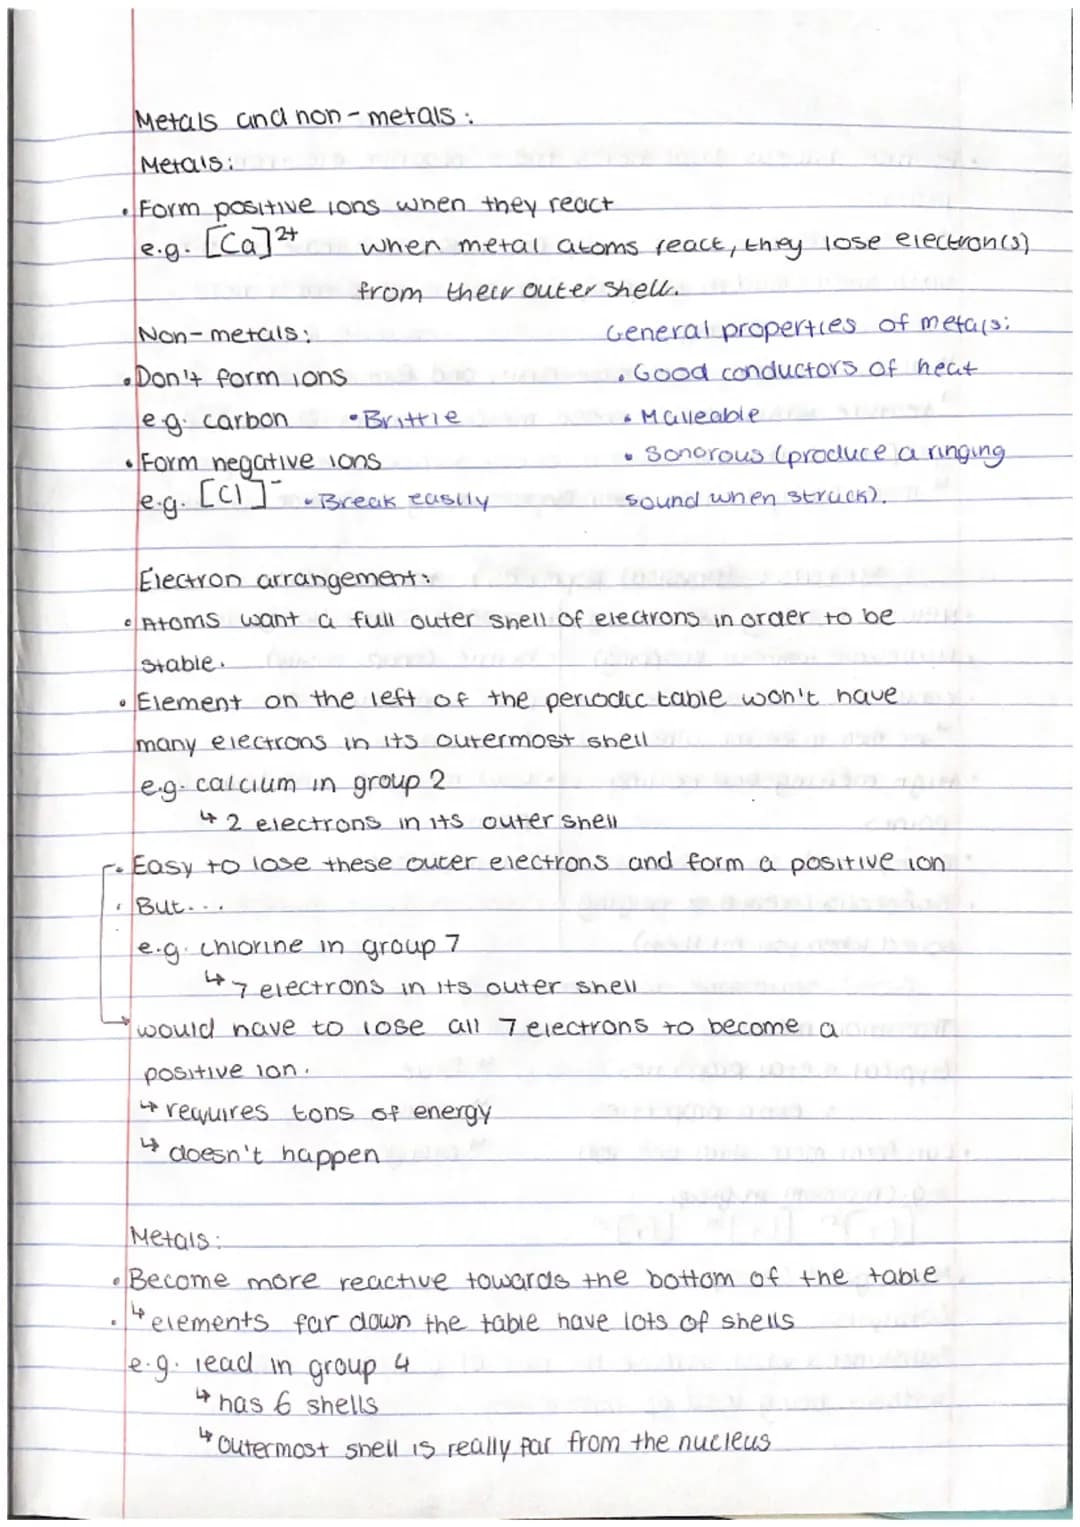 Metals and non-metals:
Metals:
• Form positive ions when they react
e.g. [Ca]²⁺ when metal atoms react, they lose electron(s)
from their outer shell.
Non-metals:
• Don't form ions
e.g. carbon • Brittle
• Form negative ions
e.g. [Cl]⁻ • Break easily
General properties of metals:
• Good conductors of heat
• Malleable
• Sonorous (produce a ringing
sound when struck).
Electron arrangement:
• Atoms want a full outer shell of electrons in order to be
stable.
• Element on the left of the periodic table won't have
many electrons in its outermost shell
e.g. calcium in group 2
↳ 2 electrons in its outer shell
• Easy to lose these outer electrons and form a positive ion
• But...
e.g. chlorine in group 7
↳ 7 electrons in its outer shell
→ would have to lose all 7 electrons to become a
positive ion.
↳ requires tons of energy
↳ doesn't happen
Metals:
• Become more reactive towards the bottom of the table
• ↳ elements far down the table have lots of shells
e.g. lead in group 4
↳ has 6 shells
↳ outermost shell is really far from the nucleus